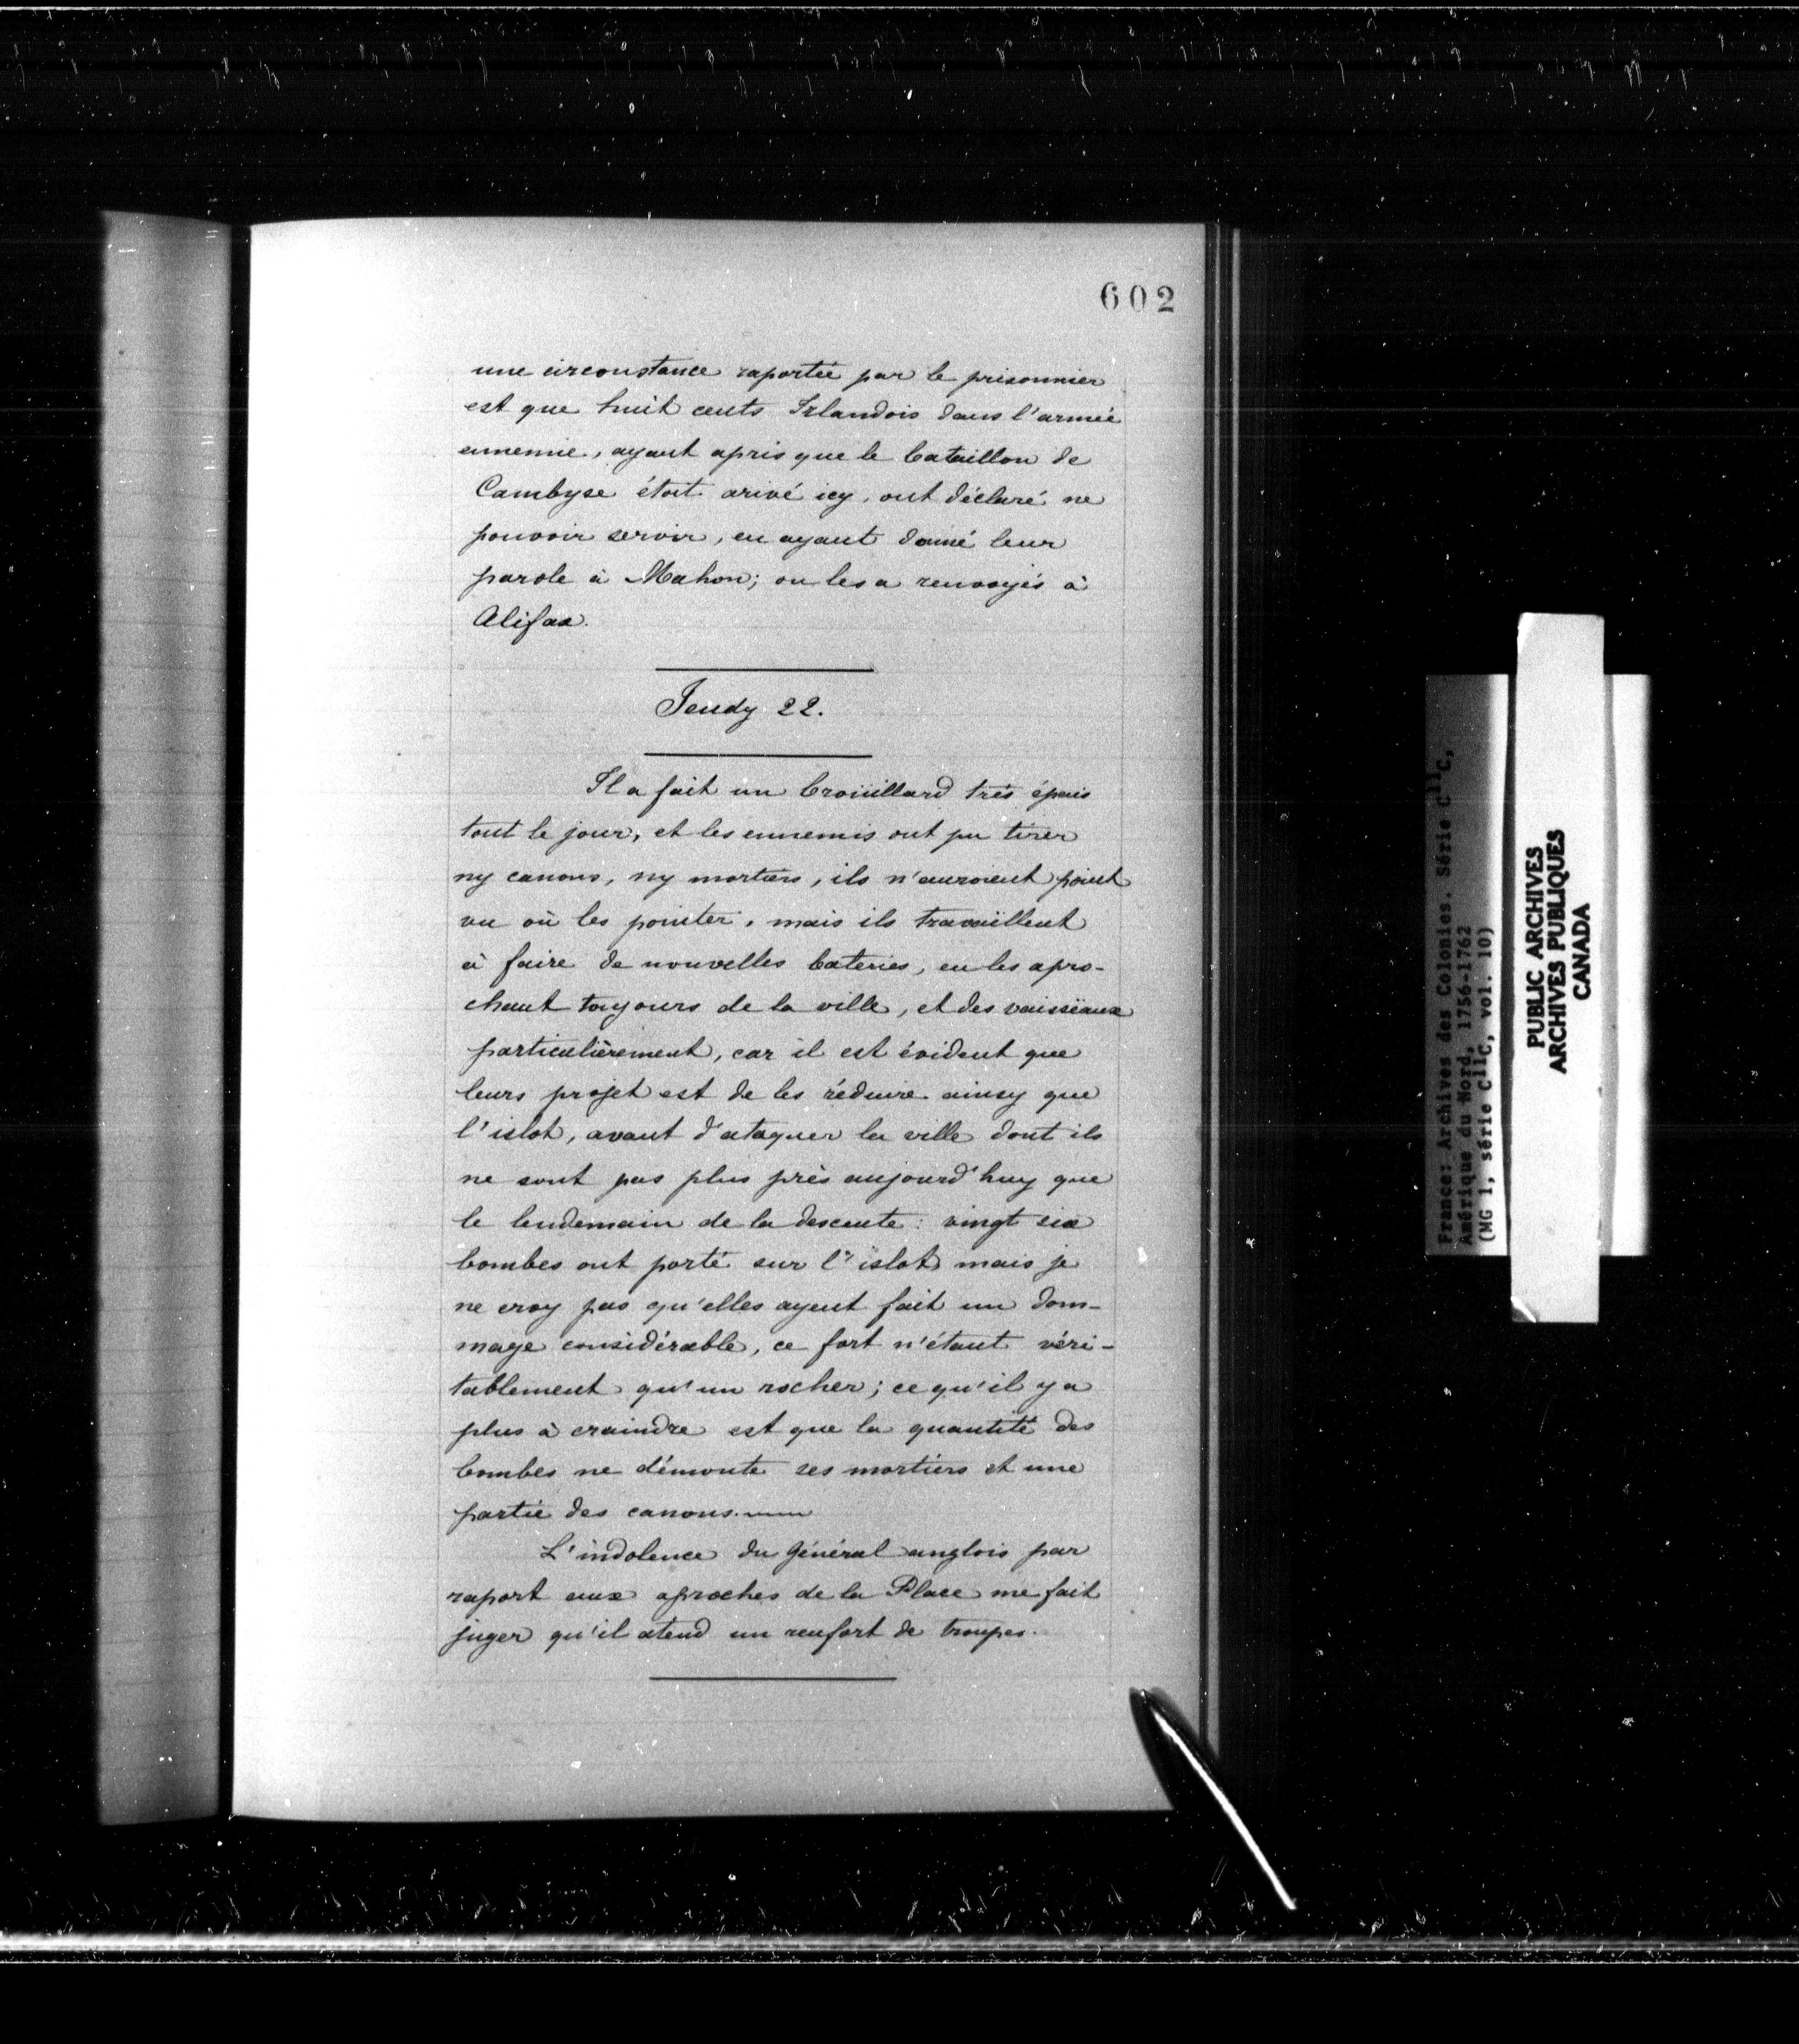 602
une circonstance raportée par le prisonnier
est que huit cents Irlandois dans l'armée
ennemie, ayant apris que le bataillon de
Cambyse étoit arivé icy, ont déclaré ne
pouvoir servir, en ayant donné leur
parole à Mahon; on les a renvoyés à
Alifax.
Jeudy 22.
Il a fait un broüillard très épais
tout le jour, et les ennemis ont pu tirer
ny canons, ny mortiers, ils n'auroient point
vu où les pointer, mais ils travaillent
à faire de nouvelles bateries, en les apro-
chant toujours de la ville, et des vaisseaux
particulièrement, car il est évident que
leurs projet est de les réduire ainsy que
l'islot, avant d'ataquer la ville dont ils
ne sont pas plus près aujourd'huy que
le lendemain de la descente: vingt six
bombes ont porté sur l'islot mais je
ne croy pas qu'elles ayent fait un dom-
mage considérable, ce fort n'étant véri-
tablement qu'un rocher; ce qu'il y a
plus à craindre est que la quantité des
bombes ne démonte ses mortiers et une
partie des canons.
L'indolence du Général anglois par
raport aux aproches de la Place me fait
juger qu'il atend un renfort de troupes.
France: Archives des Colonies. Série C11C,
Amérique du Nord, 1756-1762
(MG 1, série C11C, vol. 10)
PUBLIC ARCHIVES
ARCHIVES PUBLIQUES
CANADA